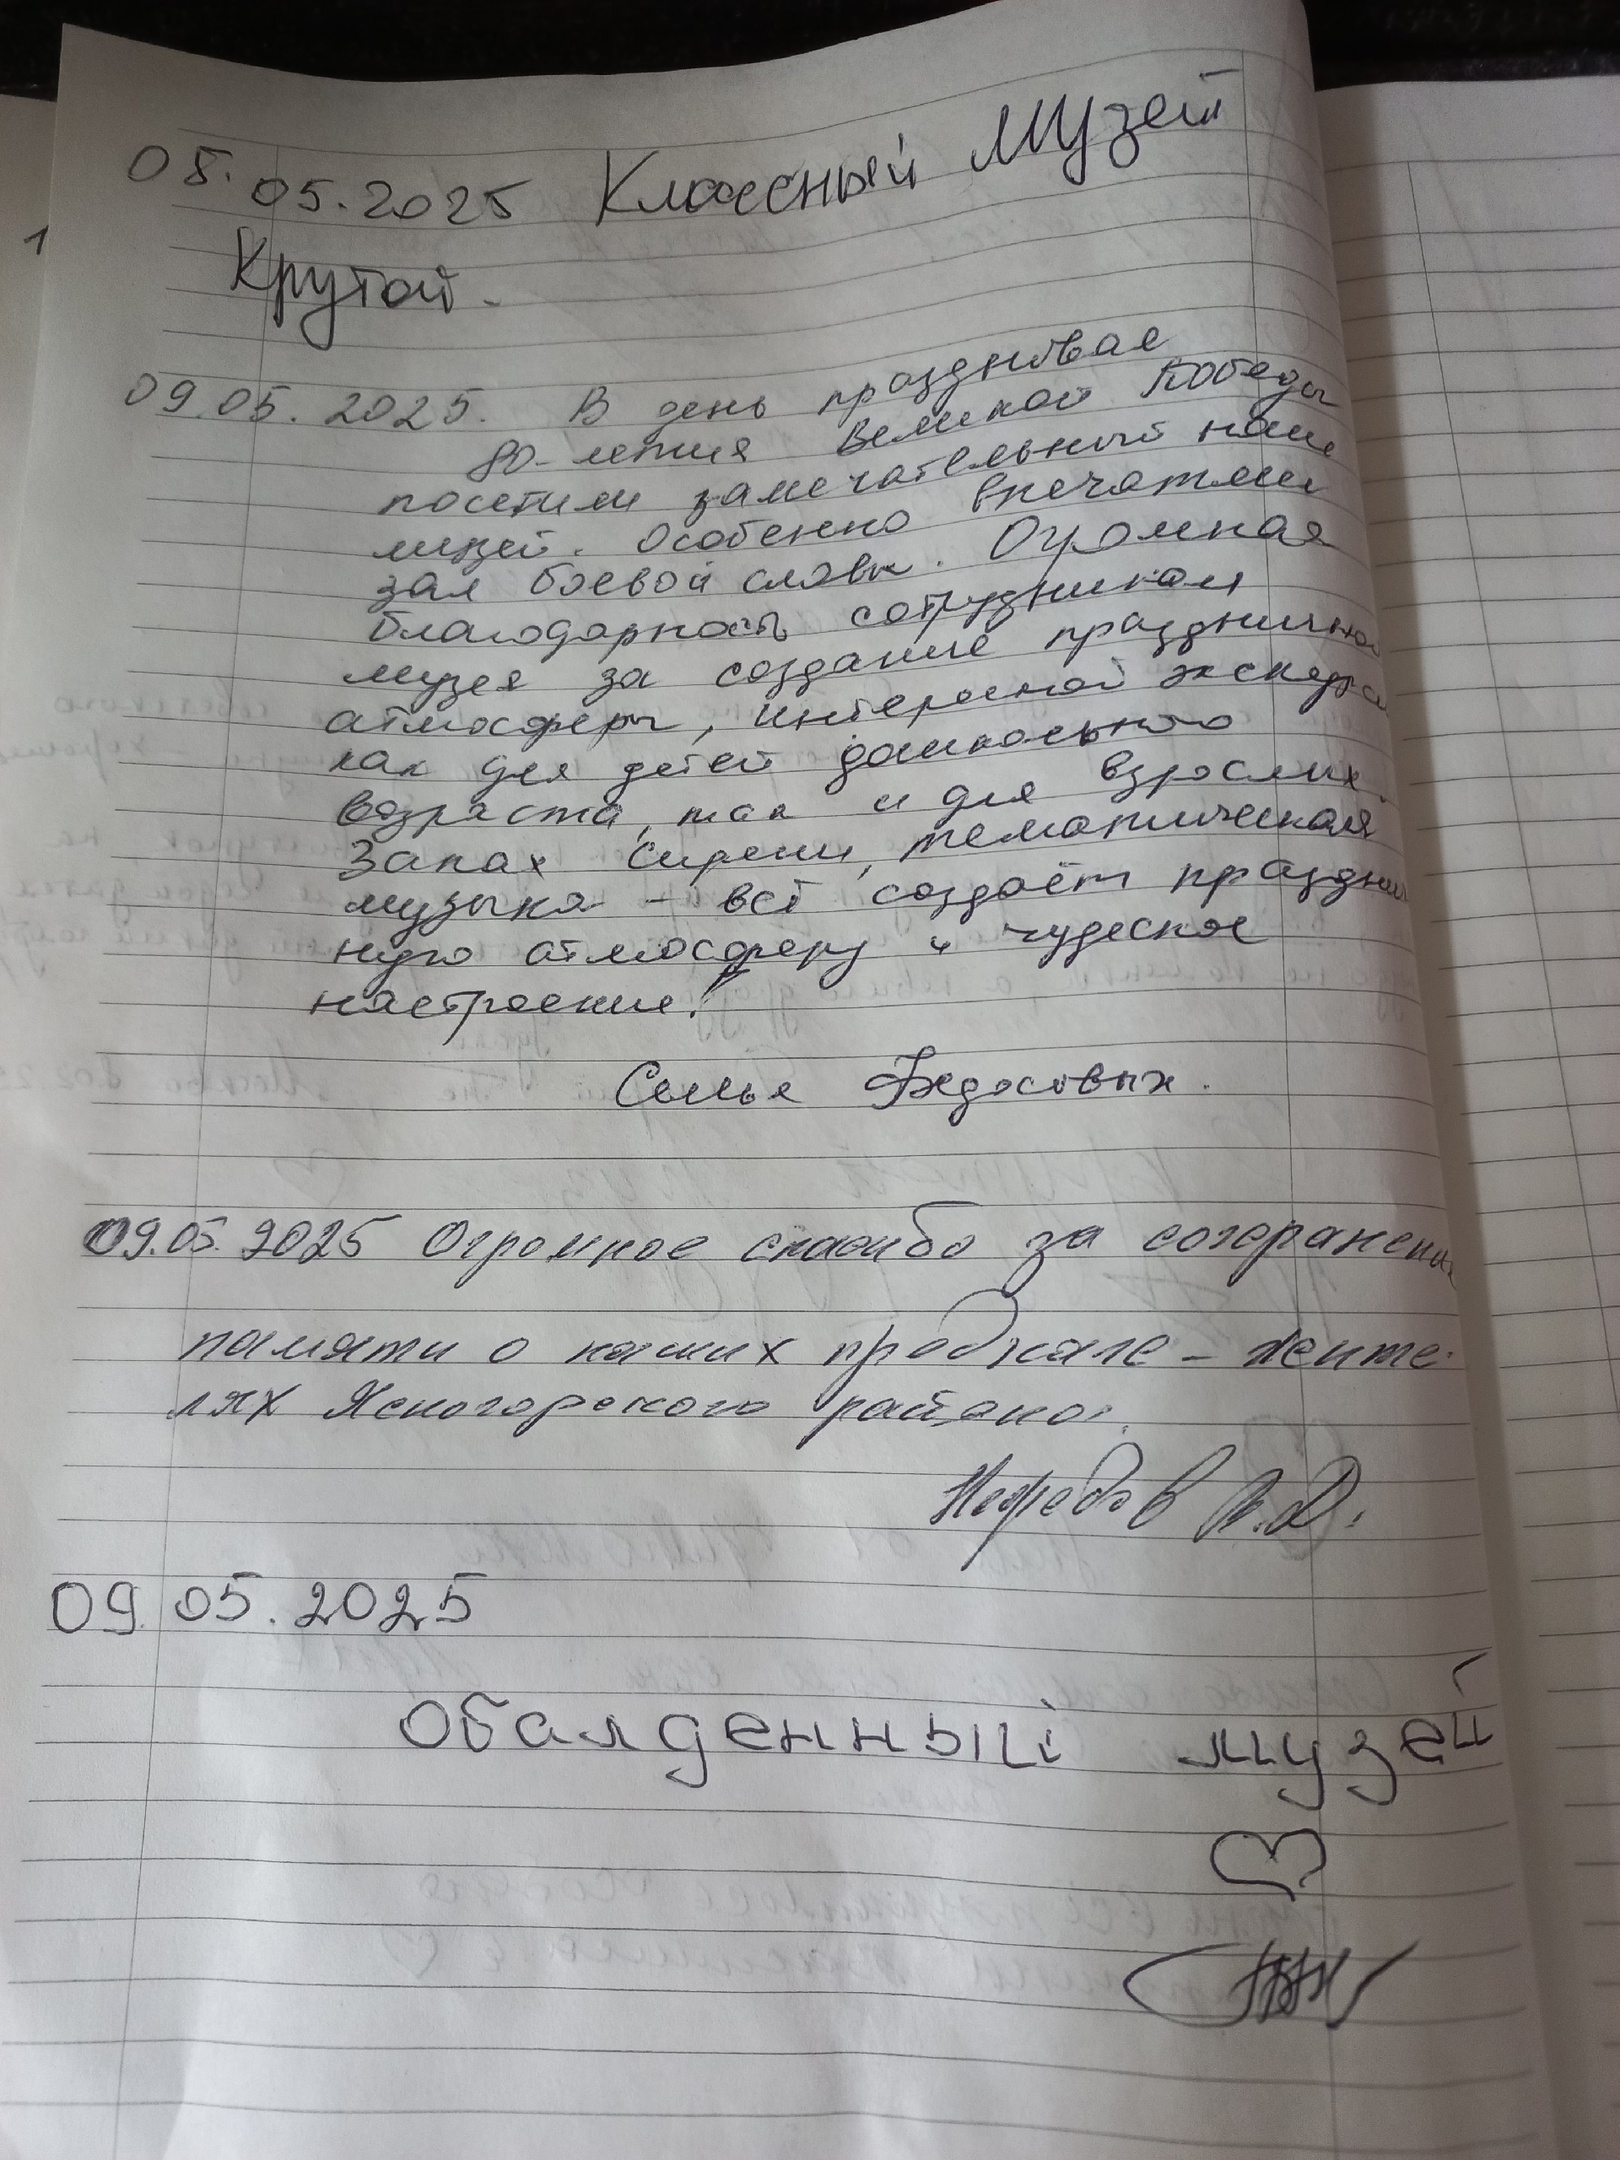 08.05.2025 Классный Музей
Крутой.
09.05.2025. В день празднова
80-летия Великой Победы
посетили замечательный наш
музей. Особенно впечатлил
зал боевой славы. Огромная
благодарность сотрудникам
музея за создание празднично
атмосферы, интересной экскурси
как для детей дошкольного
возраста, так и для взрослых.
Запах сирени, тематическая
музыка - всё создаёт праздни
ную атмосферу и чудесное
настроение!
Семья Федосовых.
09.05.2025 Огромное спасибо за сохранени
памяти о наших - жите-
лях Ясногорского района.
09.05.2025
Обалденный музей